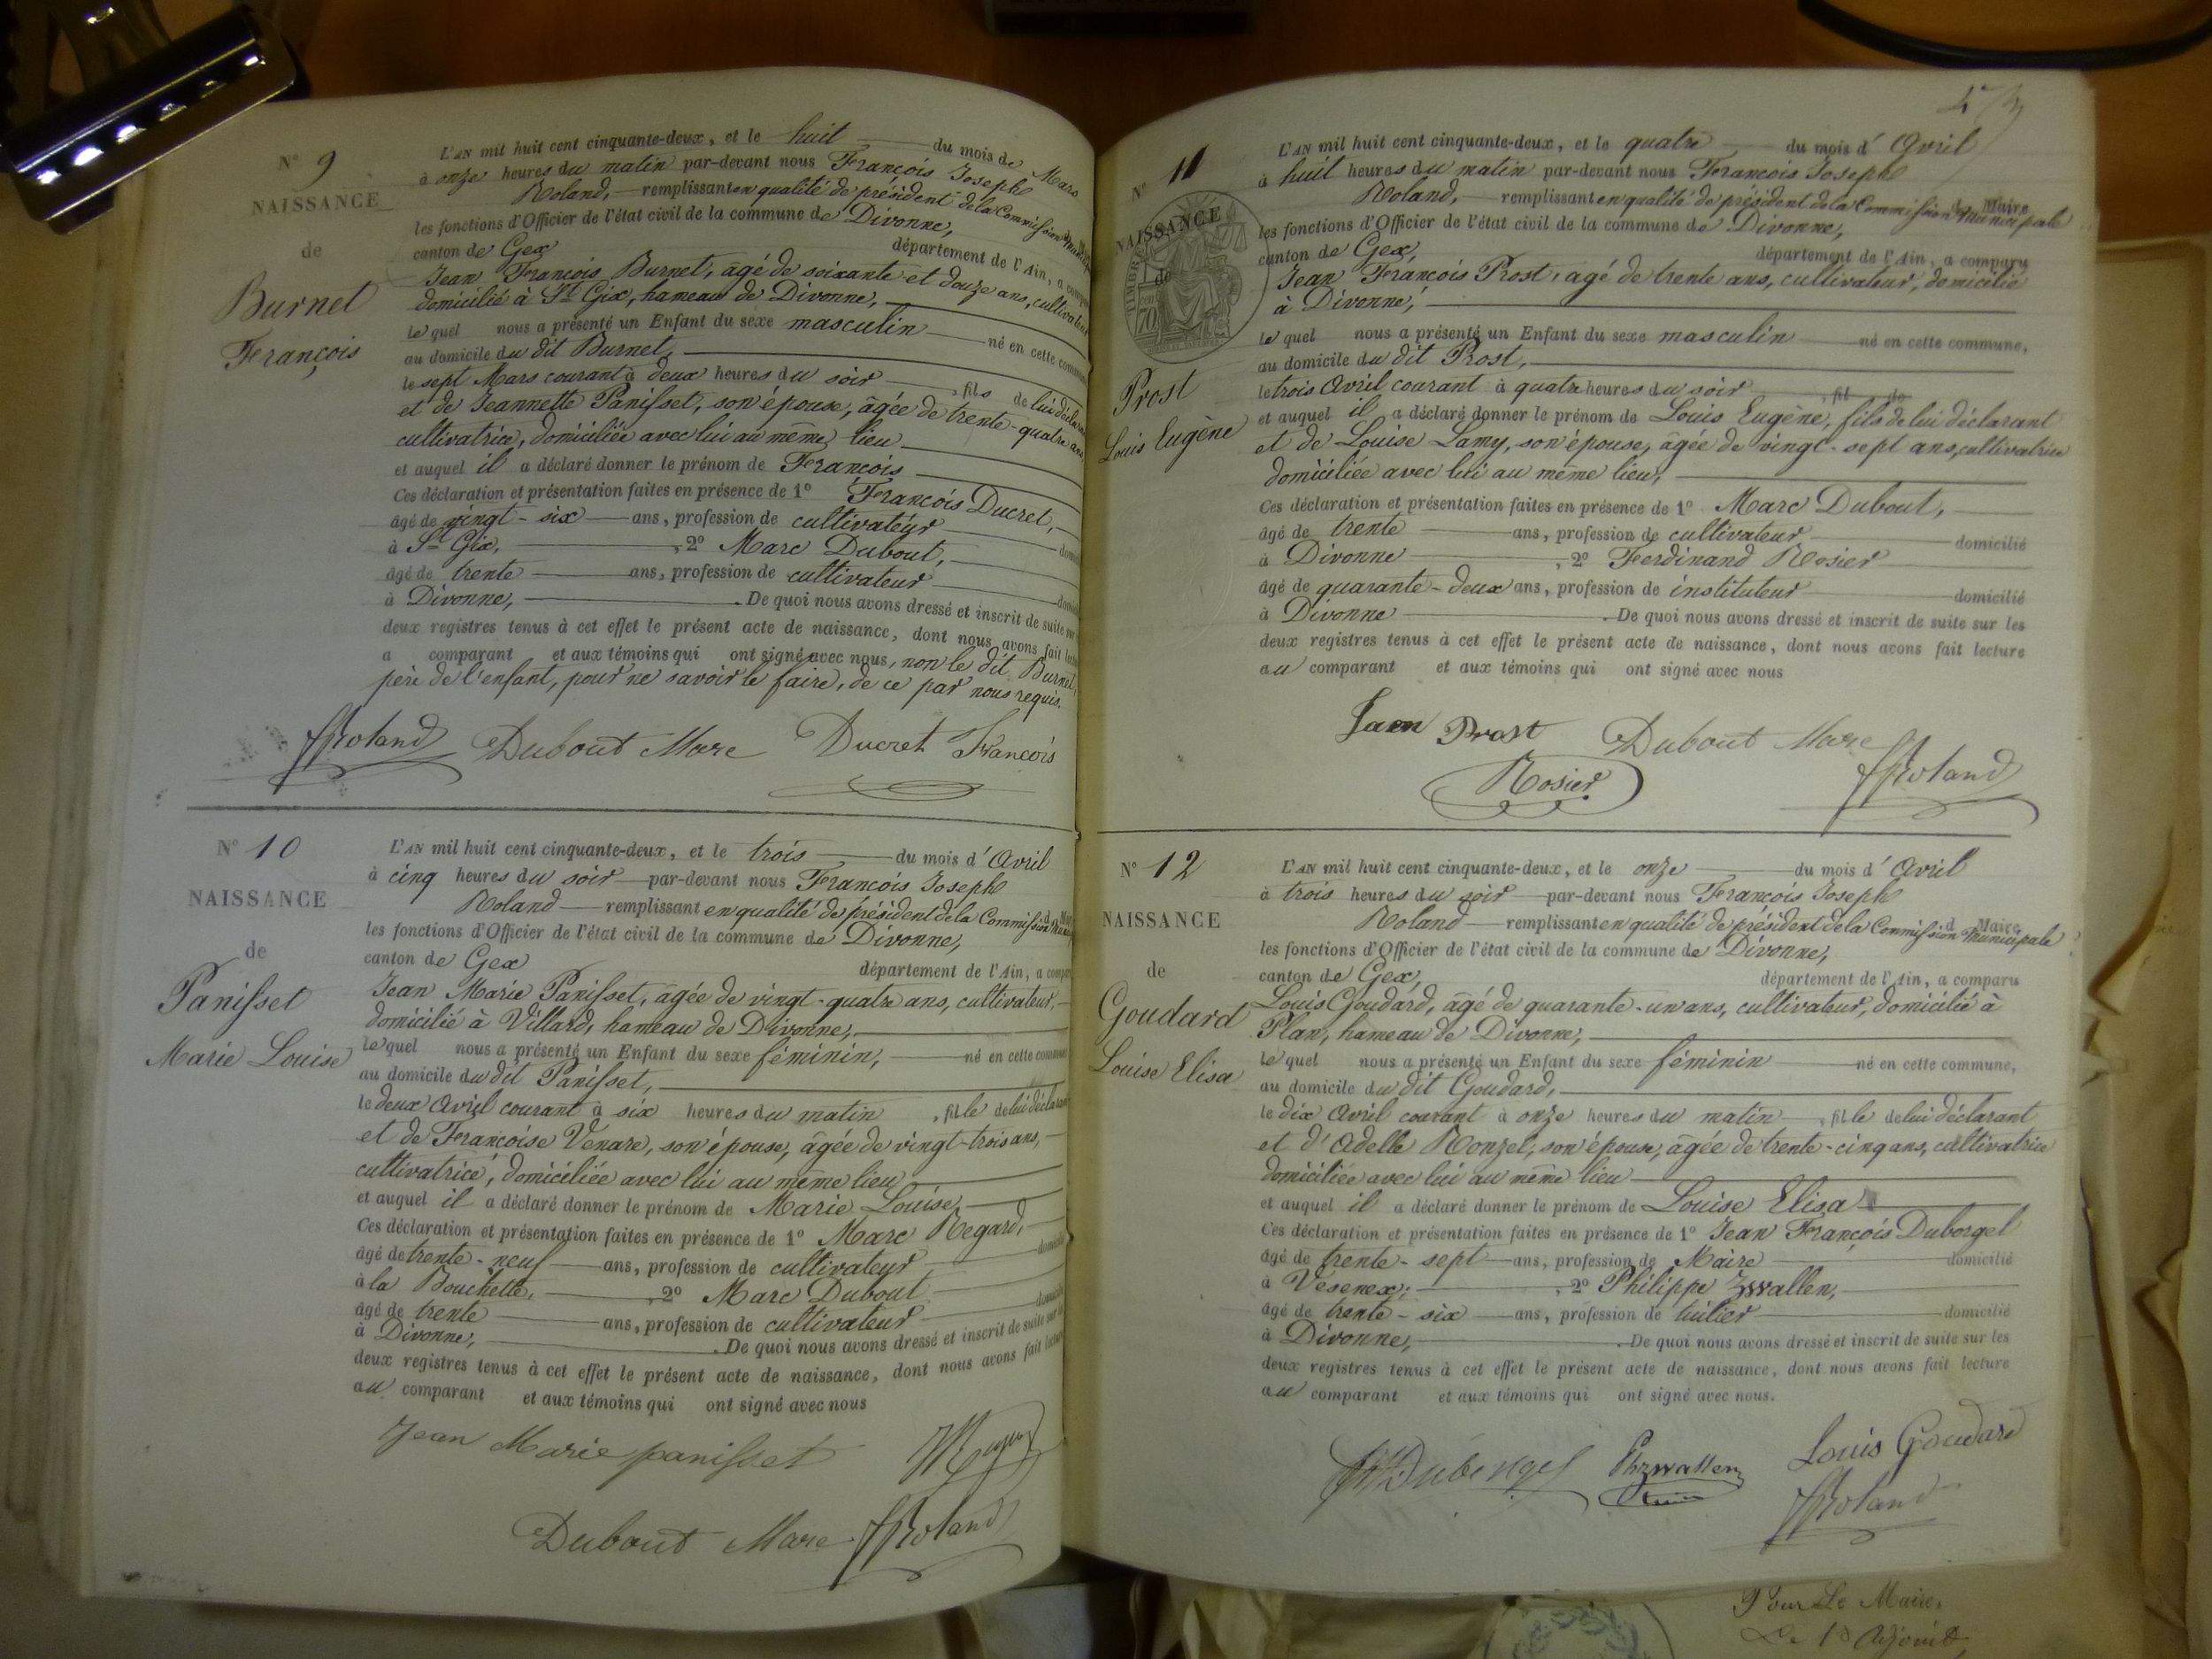 N° 9
NAISSANCE
de
Burnet
François
L'AN mil huit cent cinquante-deux, et le huit du mois de Mars
à onze heures du matin par-devant nous François Joseph
Roland, remplissant en qualité de président de la Commission
les fonctions d'Officier de l'état civil de la commune de Divonne,
canton de Gex département de l'Ain, a comparu
Jean François Burnet, âgé de soixante et douze ans, cultivateur
domicilié à St Gix, hameau de Divonne,
lequel nous a présenté un Enfant du sexe masculin né en cette commune
au domicile du dit Burnet,
le sept Mars courant à deux heures du soir, fils de lui déclarant
et de Jeannette Panisset, son épouse, âgée de trente-quatre ans
cultivatrice, domiciliée avec lui au même lieu
et auquel il a déclaré donner le prénom de François
Ces déclaration et présentation faites en présence de 1° François Ducret,
âgé de vingt-six ans, profession de cultivateur
à St Gix, 2° Marc Dubout,
âgé de trente ans, profession de cultivateur
à Divonne, De quoi nous avons dressé et inscrit de suite sur
deux registres tenus à cet effet le présent acte de naissance, dont nous avons fait lecture
a comparant et aux témoins qui ont signé avec nous, non le dit Burnet,
père de l'enfant, pour ne savoir le faire, de ce par nous requis.
Roland Dubout Marc Ducret François
N° 10
NAISSANCE
de
Panisset
Marie Louise
L'AN mil huit cent cinquante-deux, et le trois du mois d'Avril
à cinq heures du soir par-devant nous François Joseph
Roland remplissant en qualité de président de la Commission
les fonctions d'Officier de l'état civil de la commune de Divonne,
canton de Gex département de l'Ain, a comparu
Jean Marie Panisset, âgée de vingt-quatre ans, cultivateur,
domicilié à Villard, hameau de Divonne,
lequel nous a présenté un Enfant du sexe féminin, né en cette commune
au domicile du dit Panisset,
le deux Avril courant à six heures du matin, fille de lui déclarant
et de Françoise Venare, son épouse, âgée de vingt-trois ans,
cultivatrice, domiciliée avec lui au même lieu
et auquel il a déclaré donner le prénom de Marie Louise,
Ces déclaration et présentation faites en présence de 1° Marc Regard,
âgé de trente-neuf ans, profession de cultivateur
à la Bouchette, 2° Marc Dubout
âgé de trente ans, profession de cultivateur
à Divonne, De quoi nous avons dressé et inscrit de suite sur les
deux registres tenus à cet effet le présent acte de naissance, dont nous avons fait lecture
au comparant et aux témoins qui ont signé avec nous
Jean Marie panisset
Dubout Marc Roland
N° 11
NAISSANCE
de
Prost
Louis Eugène
L'AN mil huit cent cinquante-deux, et le quatre du mois d'Avril
à huit heures du matin par-devant nous François Joseph
Roland, remplissant en qualité de président de la Commission Municipale
les fonctions d'Officier de l'état civil de la commune de Divonne,
canton de Gex, département de l'Ain, a comparu
Jean François Prost, agé de trente ans, cultivateur, domicilié
à Divonne,
lequel nous a présenté un Enfant du sexe masculin né en cette commune,
au domicile du dit Prost,
le trois Avril courant à quatre heures du soir, fil de
et auquel il a déclaré donner le prénom de Louis Eugène, fils de lui déclarant
et de Louise Lamy, son épouse, âgée de vingt-sept ans, cultivatrice
domiciliée avec lui au même lieu,
Ces déclaration et présentation faites en présence de 1° Marc Dubout,
âgé de trente ans, profession de cultivateur domicilié
à Divonne, 2° Ferdinand Rosier
âgé de quarante-deux ans, profession de instituteur domicilié
à Divonne. De quoi nous avons dressé et inscrit de suite sur les
deux registres tenus à cet effet le présent acte de naissance, dont nous avons fait lecture
au comparant et aux témoins qui ont signé avec nous
Jaen Prost Dubout Marc
Rosier Roland
N° 12
NAISSANCE
de
Goudard
Louise Elisa
L'AN mil huit cent cinquante-deux, et le onze du mois d'Avril
à trois heures du soir par-devant nous François Joseph
Roland remplissant en qualité de président de la Commission Municipale
les fonctions d'Officier de l'état civil de la commune de Divonne,
canton de Gex, département de l'Ain, a comparu
Louis Goudard, âgé de quarante-un ans, cultivateur, domicilié à
Plan, hameau de Divonne,
lequel nous a présenté un Enfant du sexe féminin né en cette commune,
au domicile du dit Goudard,
le dix Avril courant à onze heures du matin, fille de lui déclarant
et d'Adelle Ronzel, son épouse, âgée de trente-cinq ans, cultivatrice
domiciliée avec lui au même lieu
et auquel il a déclaré donner le prénom de Louise Elisa
Ces déclaration et présentation faites en présence de 1° Jean François Duborgel
âgé de trente-sept ans, profession de Maire domicilié
à Vesenex; 2° Philippe Zwallen,
âgé de trente-six ans, profession de tuilier domicilié
à Divonne, De quoi nous avons dressé et inscrit de suite sur les
deux registres tenus à cet effet le présent acte de naissance, dont nous avons fait lecture
au comparant et aux témoins qui ont signé avec nous.
Louis Goudard
Phzwallen
Roland
Pour Le Maire,
Le 1er Adjoint